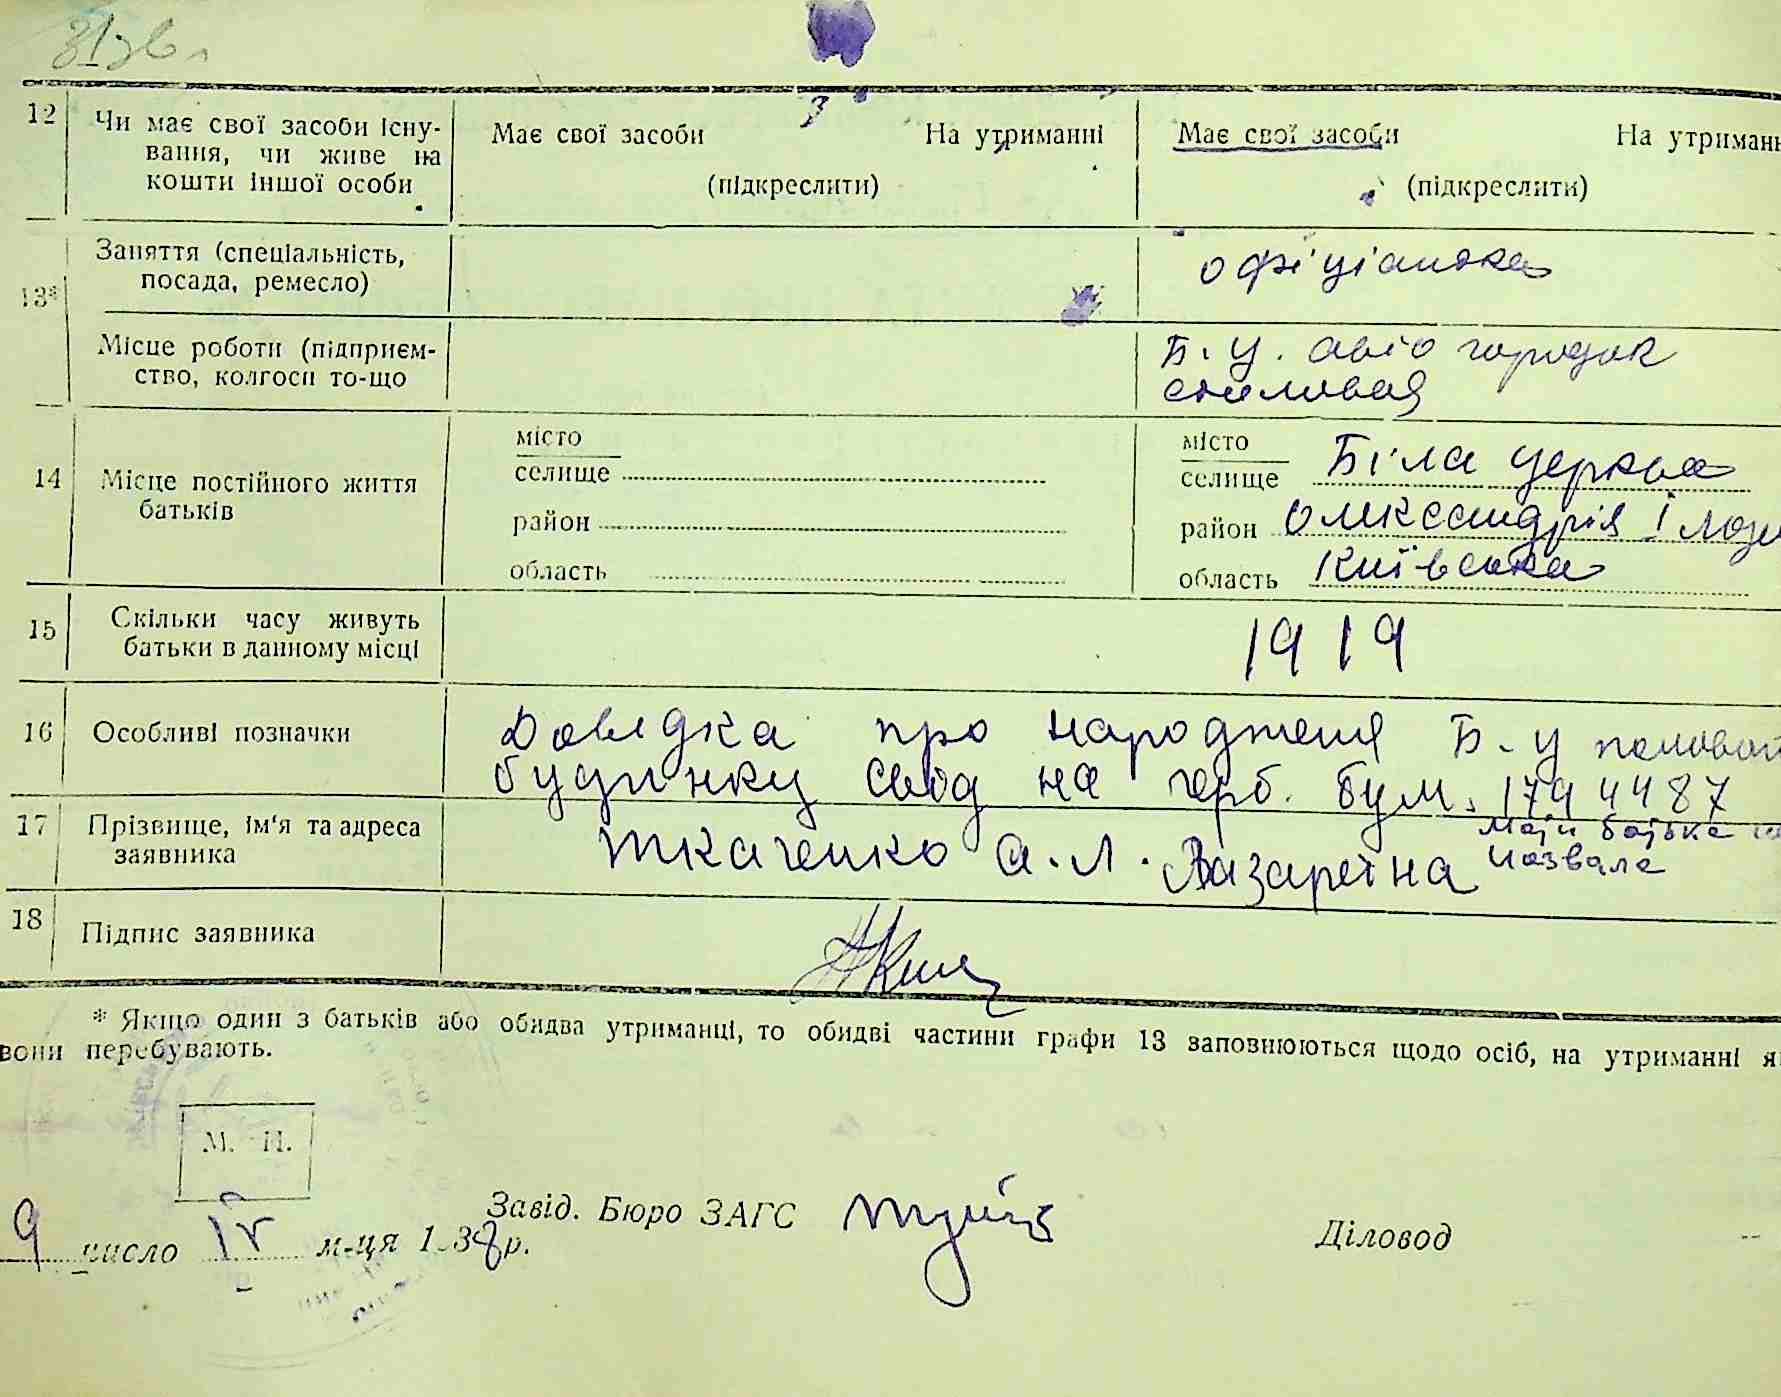 12 Чи має свої засоби існу-
вання, чи живе на
кошти іншої особи
Має свої засоби На утриманні
(підкреслити)
Має свої засоби На утриман
(підкреслити)
13* Заняття (спеціальність,
посада, ремесло)
офіціантка
Місце роботи (підприєм-
ство, колгосп то-що
Б. Ц. авіо городок
столовая
14 Місце постійного життя
батьків
місто
селище
район
область
місто
селище Біла церква
район Олександрія 1
область Київська
15 Скільки часу живуть
батьки в данному місці
1919
16 Особливі позначки
Довідка про народженя Б. Ц
будинку свод на герб. бум. 1794487
17 Прізвище, ім'я та адреса
заявника
Ткаченко А. Л.
назвала
18 Підпис заявника
* Якщо один з батьків або обидва утриманці, то обидві частини графи 13 заповнюються щодо осіб, на утриманні я
вони перебувають.
М. П.
Завід. Бюро ЗАГС
Діловод
9 число IV м-ця 1938 р.